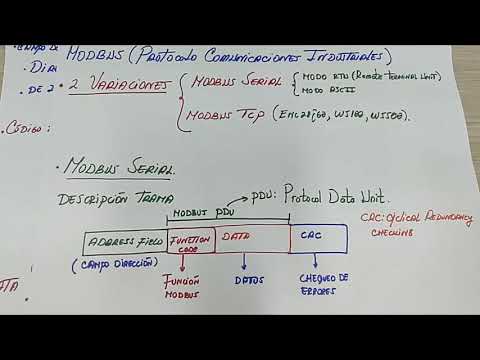 MODBUS (PROTOCOLO COMUNICACIONES INDUSTRIALES)
• 2 VARIACIONES
MODBUS SERIAL
MODO RTU (REMOTE TERMINAL UNIT)
MODO ASCII
MODBUS TCP (ENC28J60, W5100, W5500).
• DIR
DE 2
• CÓDIGO:
• MODBUS SERIAL.
DESCRIPCIÓN TRAMA
MODBUS PDU
PDU: Protocol Data Unit.
CRC: CYCLICAL REDUNDANCY
CHECKING
ADDRESS FIELD
FUNCTION
CODE
DATA
CRC
(CAMPO DIRECCIÓN)
FUNCIÓN
MODBUS
DATOS
CHEQUEO DE
ERRORES